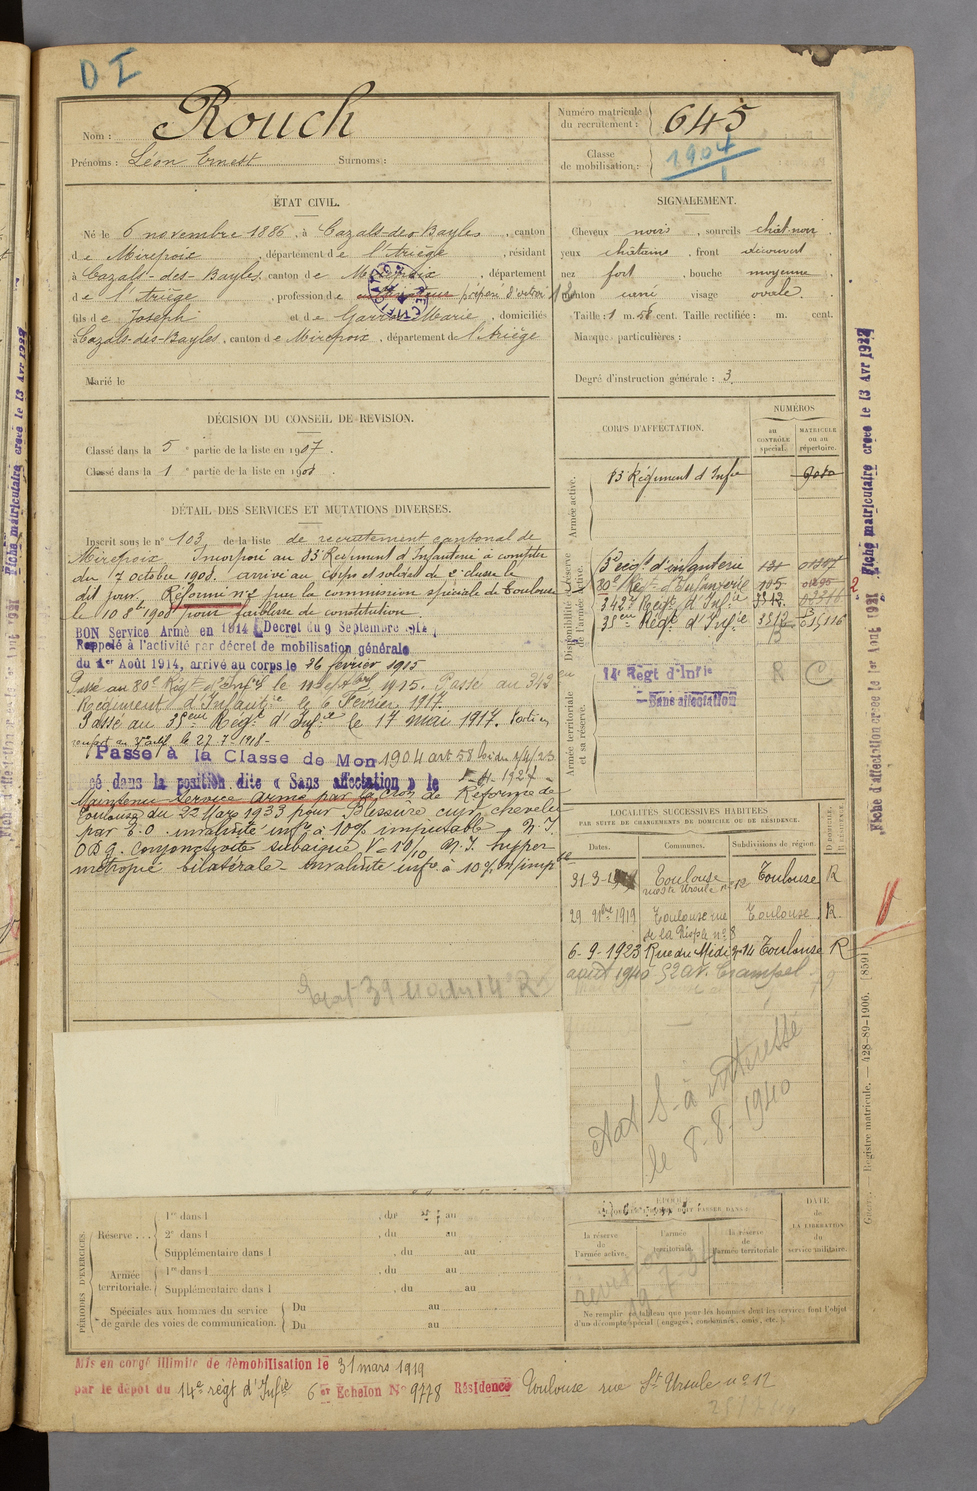 D I
Nom : Rouch
Prénoms : Léon Ernest Surnoms :
Numéro matricule du recrutement : 645
Classe de mobilisation : 1904
ÉTAT CIVIL.
Né le 6 novembre 1886, à Cazals-des-Bayles, canton
de Mirepoix, département de l'Ariège, résidant
à Cazals-des-Bayles, canton de Mirepoix, département
de l'Ariège, profession de cultivateur préposé d'octroi
fils de Joseph et de Marie, domiciliés
à Cazals-des-Bayles, canton de Mirepoix, département de l'Ariège
Marié le
SIGNALEMENT.
Cheveux noirs, sourcils chât-noir
yeux châtains, front découvert
nez fort, bouche moyenne
menton visage ovale
Taille : 1 m. 58 cent. Taille rectifiée : m. cent.
Marques particulières :
Degré d'instruction générale : 3
DÉCISION DU CONSEIL DE REVISION.
Classé dans la 5e partie de la liste en 1907.
Classé dans la 1e partie de la liste en 1908.
DÉTAIL DES SERVICES ET MUTATIONS DIVERSES.
Inscrit sous le n° 103 de la liste de recrutement cantonal de
Mirepoix Incorporé au 83 Régiment d'Infanterie à compter
du 7 octobre 1908. arrivé au corps et soldat de 2e classe le
dit jour. Réformé n°2 par la commission spéciale de Toulouse
le 10 8bre 1908 pour faiblesse de constitution
BON Service Armé en 1914 (Décret du 9 Septembre 1914)
Rappelé à l'activité par décret de mobilisation générale
du 1er Août 1914, arrivé au corps le 26 février 1915
Passé au 80e Régt d'Infie le 11 Septbre 1915. Passé au 342
Régiment d'Infantie le 6 Février 1917.
Passé au 38eme Régt d'Infie le 17 mai 1917. Parti en
renfort le 27-7-1918-
Passé à la Classe de Mon 1904 art 58 loi du 1/4/23
cé dans la position dite « Sans affectation » le
Maintenu Service armé par la Cion de Réforme de
Toulouse du 22 Mars 1933 pour Blessure cuir chevelu
par E.O. invalidité infre à 10% imputable. N.I.
ODG. conjonctivite subaigue V = 10/10 N.I. hyper
métropie bilatérale - invalidité infre à 10% non imple
CORPS D'AFFECTATION.
NUMÉROS
au CONTRÔLE spécial.
MATRICULE ou au répertoire.
Armée active.
83 Régiment d'Infie
Disponibilité et réserve de l'armée active.
d'infanterie
80e Régt d'Infanterie 105
342e Régt d'Infie
38eme Régt d'Infie
Armée territoriale et sa réserve.
14e Régt d'Infie R C
Sans affectation
LOCALITÉS SUCCESSIVES HABITÉES
PAR SUITE DE CHANGEMENTS DE DOMICILE OU DE RÉSIDENCE.
Dates. Communes. Subdivisions de région. D DOMICILE. R RÉSIDENCE.
31-3- Toulouse rue Ste Ursule n° 12 Toulouse R
29 9bre 1919 Toulouse rue Toulouse R.
n° 8
6-9-1923 Rue du Midi n°14 Toulouse R
août 1940 52 av. Crampel
à intéressé
le 8-8-1940
PÉRIODES D'EXERCICES.
Réserve . . . 1re dans l , du au
2e dans l , du au
Supplémentaire dans l , du au
Armée territoriale. 1re dans l , du au
Supplémentaire dans l , du au
Spéciales aux hommes du service de garde des voies de communication. Du au
Du au
ÉPOQUE
la réserve de l'armée active.
l'armée territoriale.
la réserve de l'armée territoriale
DATE de LA LIBÉRATION du service militaire.
Ne remplir ce tableau que pour les hommes dont les services font l'objet
d'un décompte spécial (engagés, condamnés, omis, etc.).
Mis en congé illimité de démobilisation le 31 mars 1919
par le dépôt du 14e régt d'Infie 6e Echelon N° 9778 Résidence Toulouse rue Ste Ursule n° 12
Fiche d'affectation créée le 1er Août 1931
Fiche matriculaire créée le 13 Avr 1932
Registre matricule. — 428-89-1906. [8591]